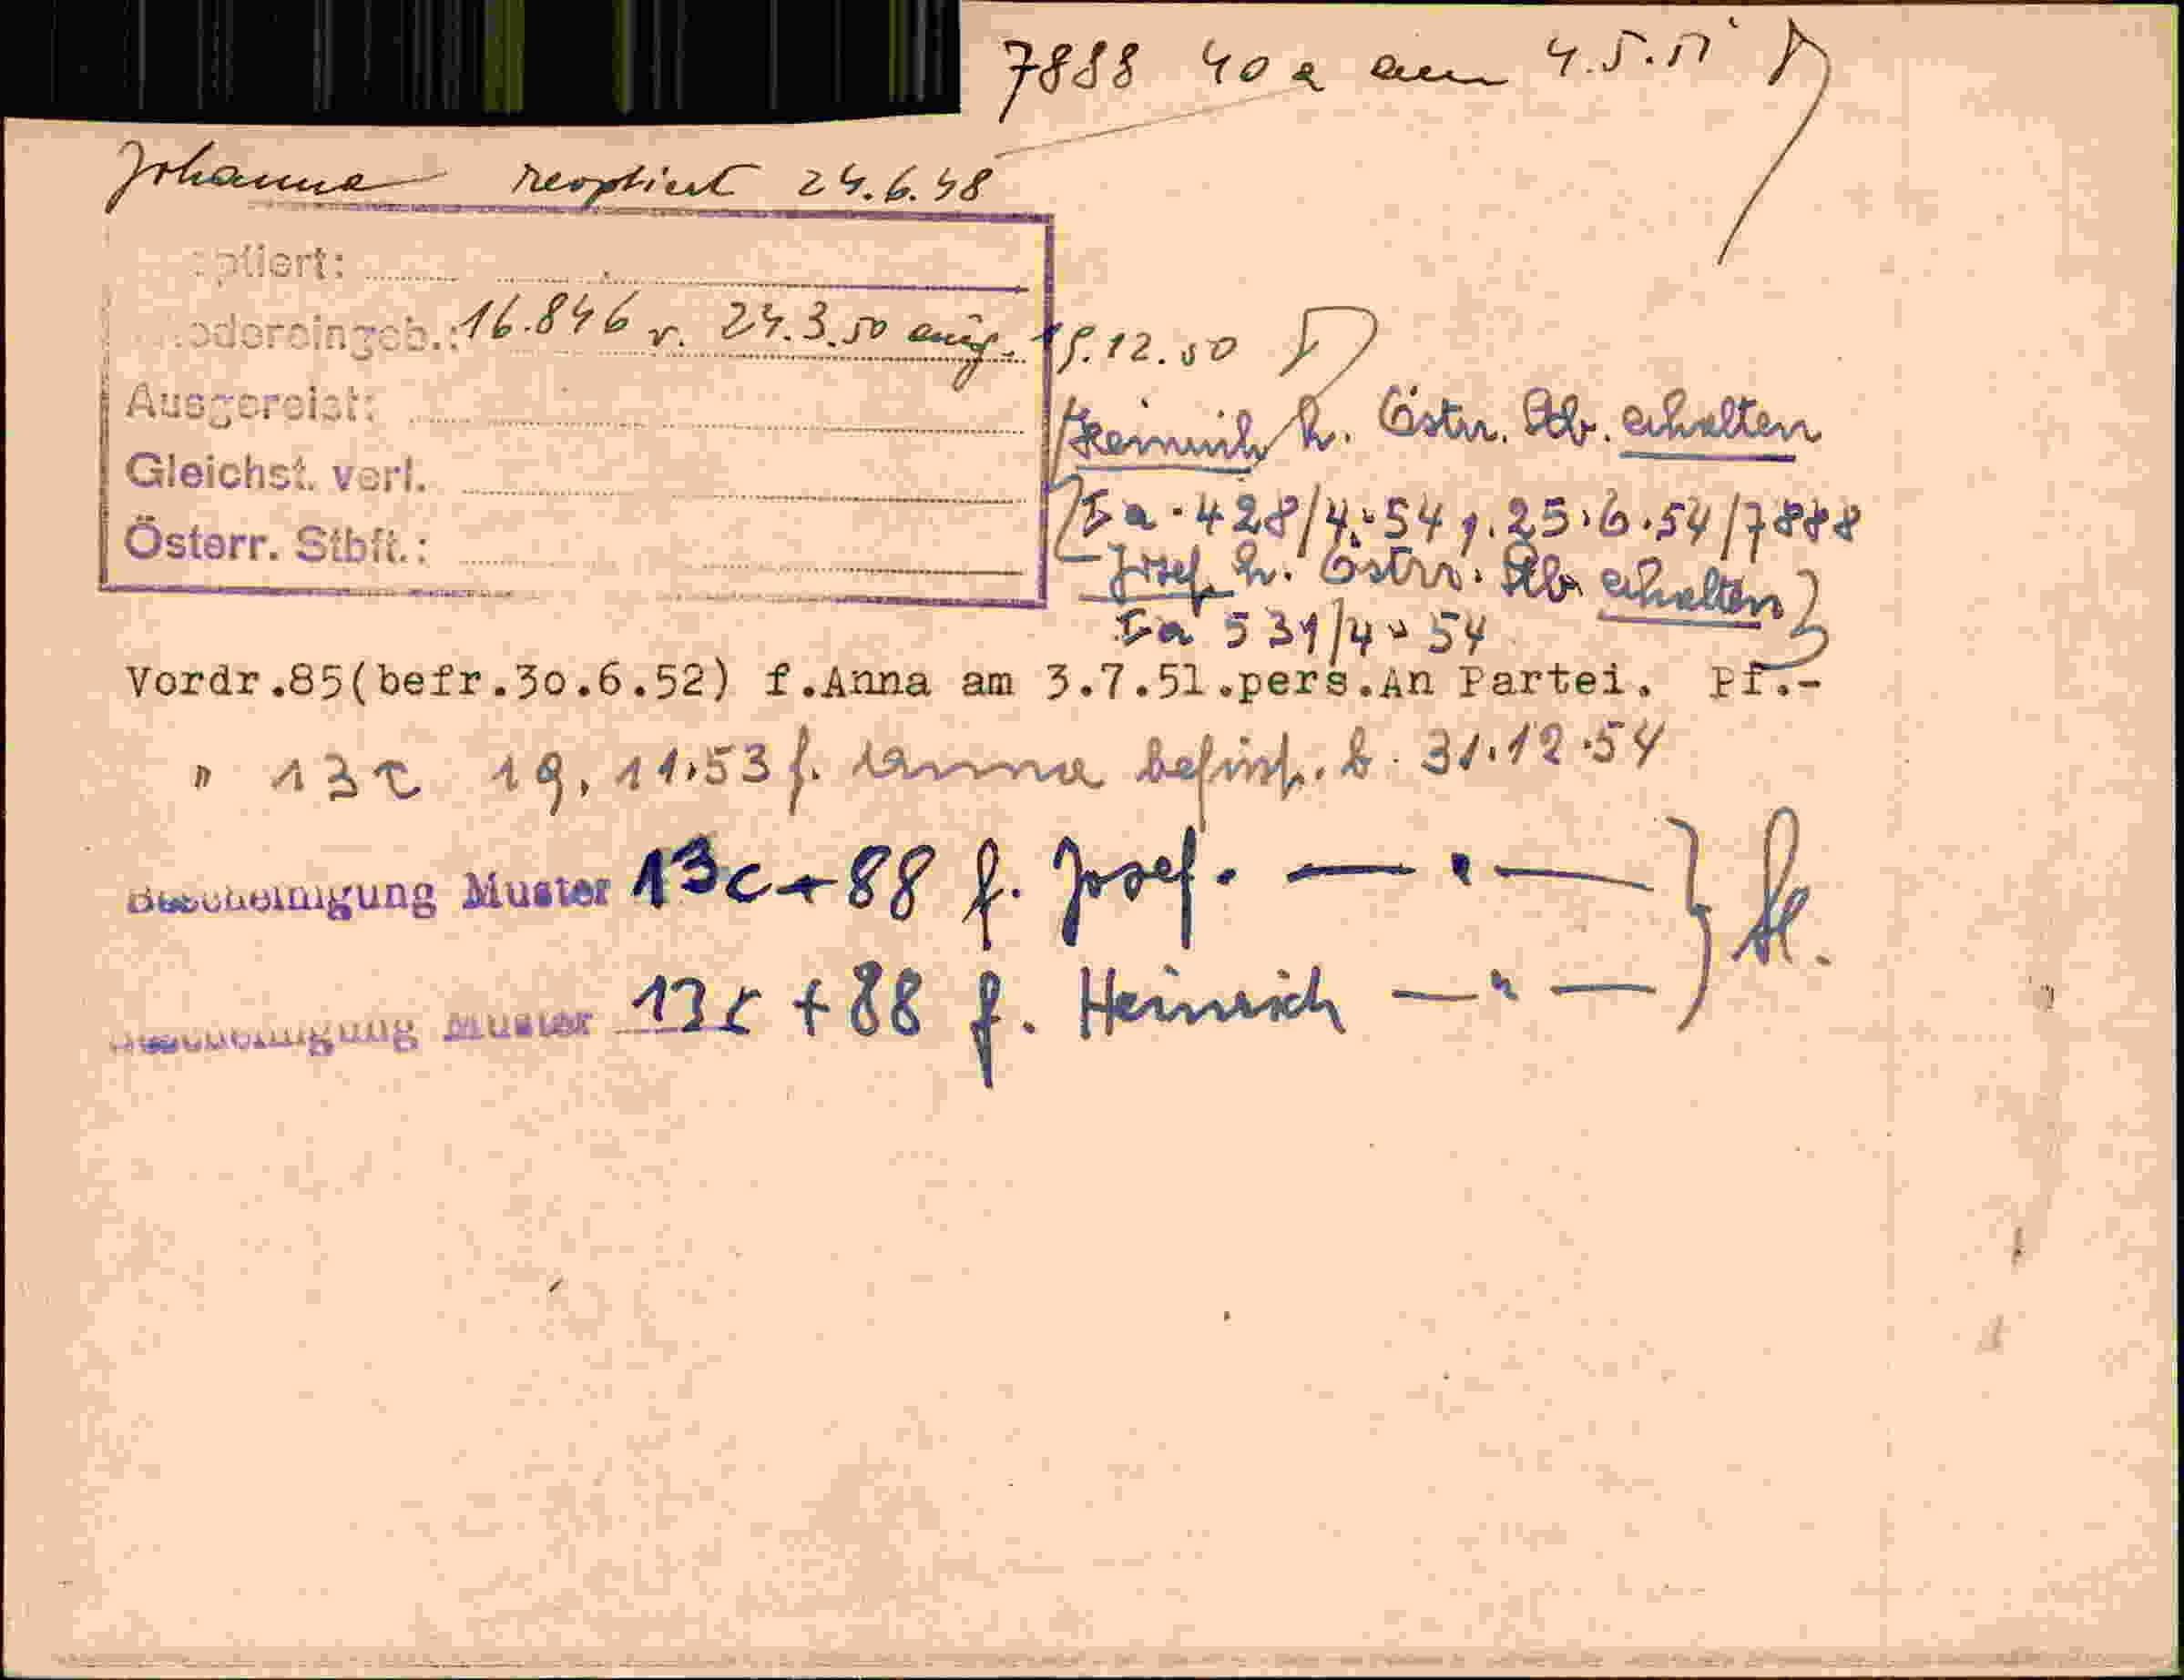 7888 40a am 4.5.51
Johanna reoptiert 24.6.48
ptiert:
edereingeb.: 16.846 v. 24.3.50 eing. 19.12.50
Ausgereist:
Heinrich h. Östr. Stb. erhalten
Gleichst. verl.
Ia-428/4-54 v. 25.6.54/7888
Österr. Stbft.:
Josef h. Östrr. Stb erhalten
Ia 531/4-54
Vordr.85(befr.30.6.52) f.Anna am 3.7.51.pers.An Partei. Pf.-
" 13c 19.11.53 f. Anna befrist. b. 31.12.54
Bescheinigung Muster 13c+88 f. Josef. — " —
Bescheinigung Muster 13c +88 f. Heinrich — " —